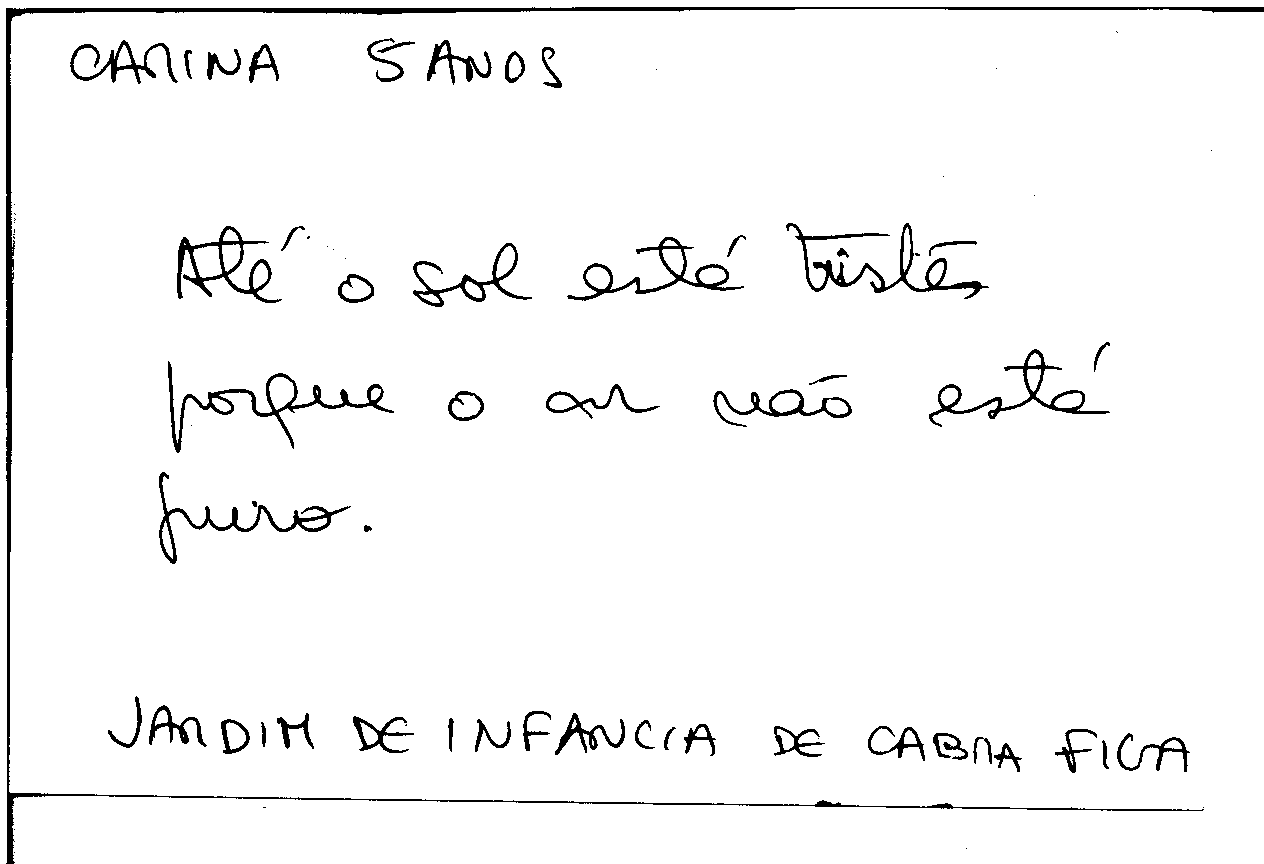 CARINA 5 ANOS
Até o sol está triste,
porque o ar não está
puro.
JARDIM DE INFANCIA DE CABRA FIGA